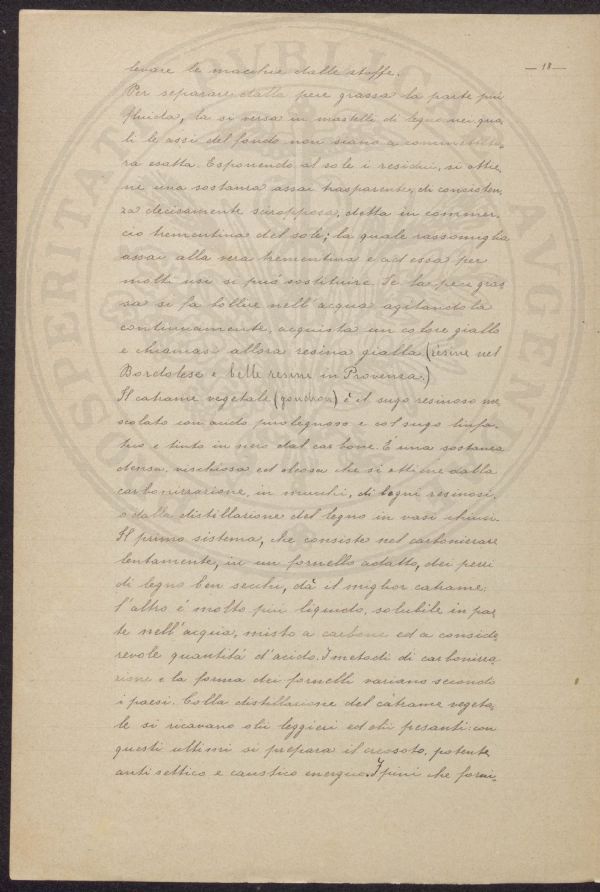 — 18 —
levare le macchie dalle stoffe.
Per separare dalla pece grassa la parte più
fluida, la si versa in mastelli di legno nei qua,
li le assi del fondo non siano a commettitu,
ra esatta. Esponendo al sole i residui, si ottie,
ne una sostanza assai trasparente, di consisten,
za decisamente sciropposa, detta in commer,
cio trementina del sole; la quale rassomiglia
assai alla vera trementina e ad essa per
molti usi si può sostituire. Se la pece gras
sa si fa bollire nell'acqua agitandola
continuamente, acquista un colore giallo
e chiamasi allora resina gialla (résine nel
Bordolese e belle resine in Provenza.)
Il catrame vegetale (goudron) è il sugo resinoso me
scolato con acido pirolegnoso e col sugo linfa,
tico e tinto in nero dal carbone. È una sostanza
densa, vischiosa ed oleosa che si ottiene dalla
carbonizzazione, in mucchi, di legni resinosi,
o dalla distillazione del legno in vasi chiusi.
Il primo sistema, che consiste nel carbonizzare
lentamente, in un fornello adatto, dei pezzi
di legno ben secchi, dà il miglior catrame:
l'altro è molto più liquido, solubile in par
te nell'acqua, misto a carbone ed a conside
revole quantità d'acido. I metodi di carbonizza,
zione e la forma dei fornelli variano secondo
i paesi. Colla distillazione del catrame vegeta,
le si ricavano olii leggieri ed olii pesanti: con
questi ultimi si prepara il creosoto, potente
antisettico e caustico energico. I pini che forni,
PROSPERITATI PVBLICAE AVGENDAE